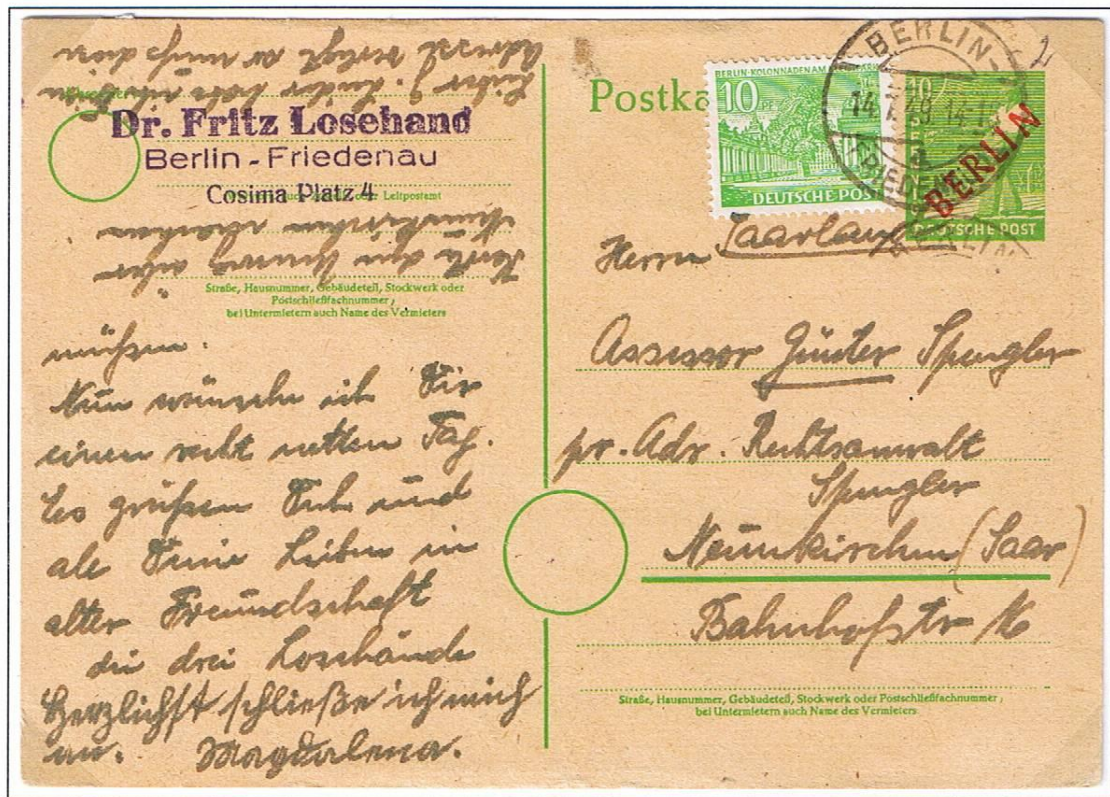 Dr. Fritz Losehand
Berlin - Friedenau
Cosima Platz 4
oder Leitpostamt
Straße, Hausnummer, Gebäudeteil, Stockwerk oder
Postschließfachnummer,
bei Untermietern auch Name des Vermieters
müssen.
Nun wünsche ich Dir
einen recht netten Tag.
Es grüßen Dich und
alle Deine Lieben in
alter Freundschaft
die drei Losehands
Herzlichst schließe ich mich
an. Magdalena.
Postka
BERLIN-KOLONNADEN AM
10 PF
DEUTSCHE POS
BERLIN-
14.7.49.14-1
FRIEDEN
BERLIN
DEUTSCHE POST
Herrn
Saarland
Assessor Günter Spengler
pr. Adr. Rechtsanwalt
Spengler
Neunkirchen (Saar)
Bahnhofstr 16
Straße, Hausnummer, Gebäudeteil, Stockwerk oder Postschließfachnummer,
bei Untermietern auch Name des Vermieters